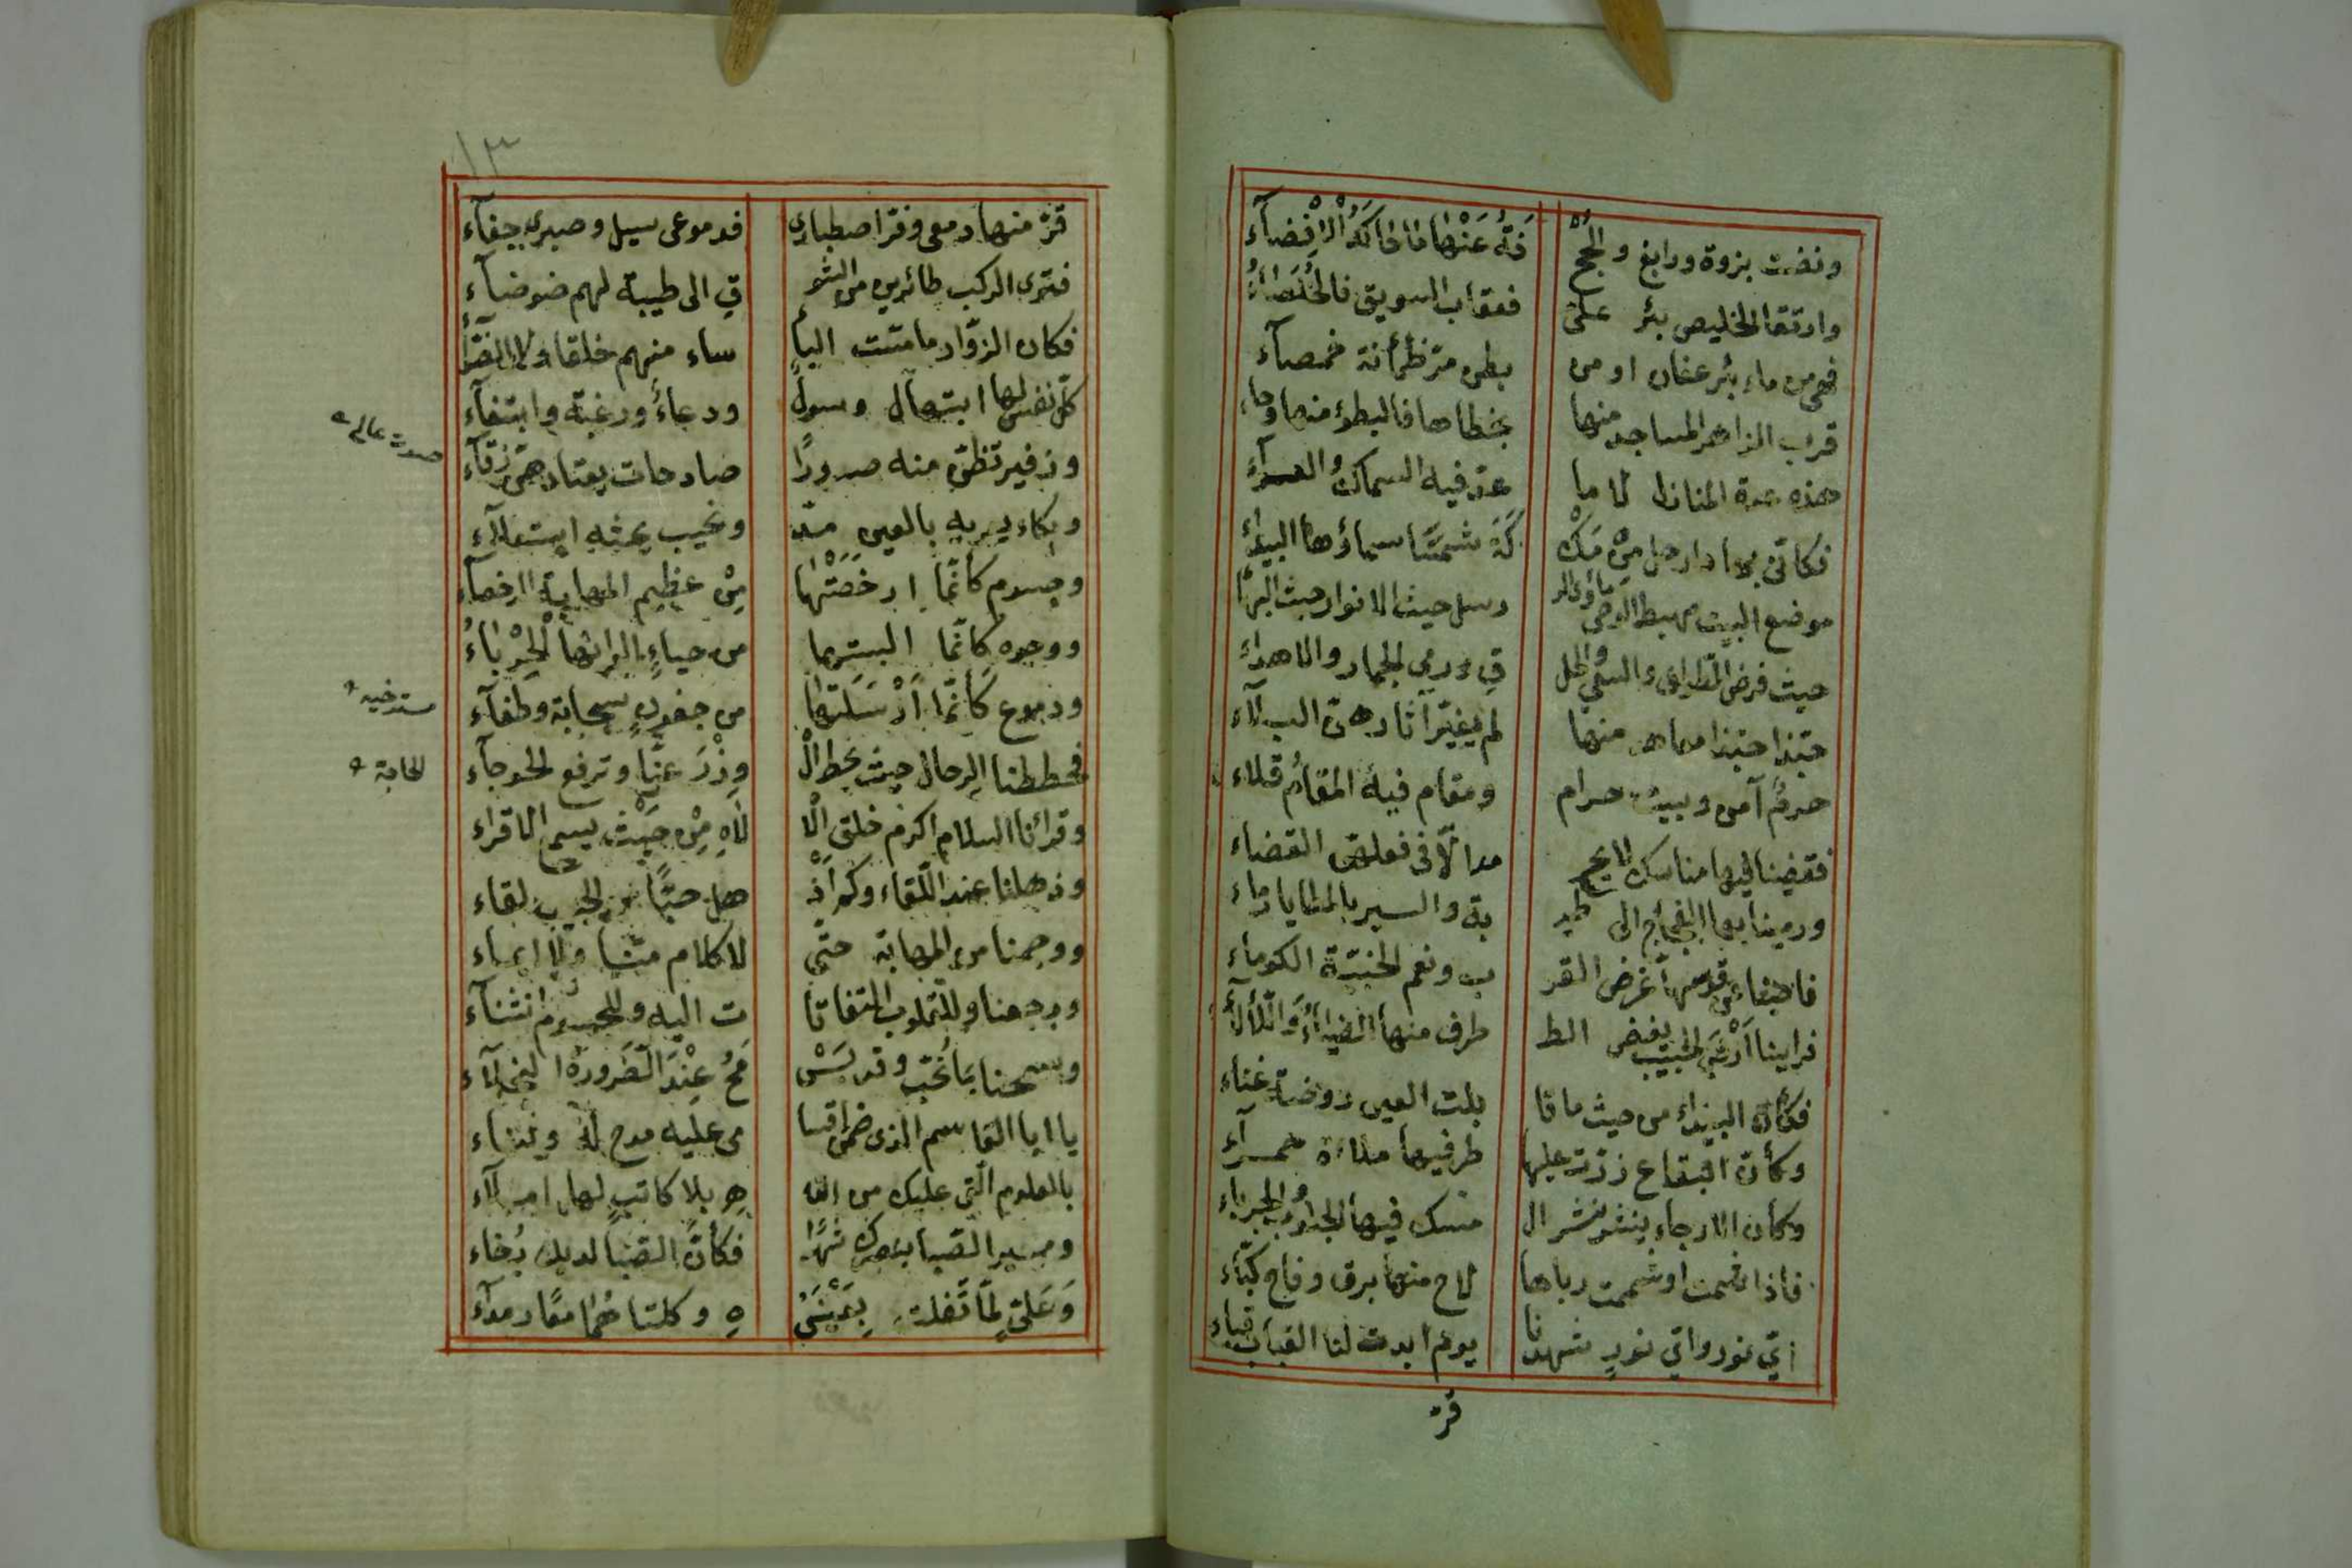 ونضت بزوة ورابغ والجح فة عنها ما حاكه الانضآء
وارتقا الخليص بئر علي فعقاب السويق فالخلصاء
فهي من ماء بئر عفان او من بطن مر ظمأنة خمصآء
قرب الزاهر المساجد منها بخطاها فالبطؤ منها وحاء
هذه عدة المنازل لا ما عد فيه السماك والعوآء
فكأني بها ارحل من مكْ كة شمسًا سماؤها البيداء
موضع البيت مهبط الوحي مأوى الر رسل حيث الانوار حيث البهاء
حيث فرض الطواف والسعي والحل ق ورمي الجمار والاهداء
حبذا حبذا معاهد منها لم يغير آثارهن البلآء
حرم آمن وبيت حرام ومقام فيه المقام تلاء
فقضينا بها مناسك لا يح مد الّا في فعلهن القضاء
ورمينا بها الفجاج الى طي بة والسير بالمطايا رماء
فاصبنا عن قوسها غرض القر ب ونعم الخبيّة الكوماء
فراينا ارض الحبيب يغض الط طرف منها الضياء واللألآء
فكأن البيداء من حيث ما قا بلت العين روضة غناء
وكأن البقاع زرت عليها طرفيها ملاءة حمرآء
وكأن الارجاء ينشر نشر ال مسك فيها الجنوب والجرباء
فاذا شمت او شممت رباها لاح منها برق وفاح كبآء
اي نور واي نور شهدنا يوم ابدت لنا القباب قباء
قرّ
١٣
قرّ منها دمعي وفر اصطباري فدموعي سيل وصبري جفآء
فترى الركب طائرين من الشو ق الى طيبة لهم ضوضآء
فكان الزوّار ما مسّت البأ ساء منهم خلقا ولا الضرّآء
كل نفس لها ابتهال وسول ودعاء ورغبة وابتغآء
وزفير تظن منه صدورًا صادحات يعتادهن زقآء
صوت عالي
وبكاء يغريه بالعين مدّ ونحيب يحثه استعلآء
وجسوم كأنما ارحضتها من عظيم المهابة الرحضآء
ووجوه كأنما البستها من حياءٍ الوانها الحرباء
ودموع كأنما ارسلتها من جفون سحابة وطفآء
مسترخية
فحططنا الرحال حيث يحط ال وزر عنّا وترفع الحوجآء
الحاجة
وقرأنا السلام اكرم خلق ال لاه من حيث يسمع الاقراء
وذهلنا عند اللقاء وكم اذ هل صبًّا من الحبيب لقاء
ووجمنا من المهابة حتى لا كلام منّا ولا ايماء
ورجعنا وللقلوب التفاتا ت اليه وللجسوم انثنآء
وسمحنا بما نحب وقد يسْ مح عند الضرورة البخلآء
يا ابا القاسم الذي ضمن اقسا مي عليه مدح له وثناء
بالعلوم التي عليك من الل ه بلا كاتب لها املآء
ومسير الصبا بنصرك شهرًا فكأنّ الصبا لديك رخاء
وعلي لما تفلت بعينيْ ه وكلتاهما معًا رمدآء